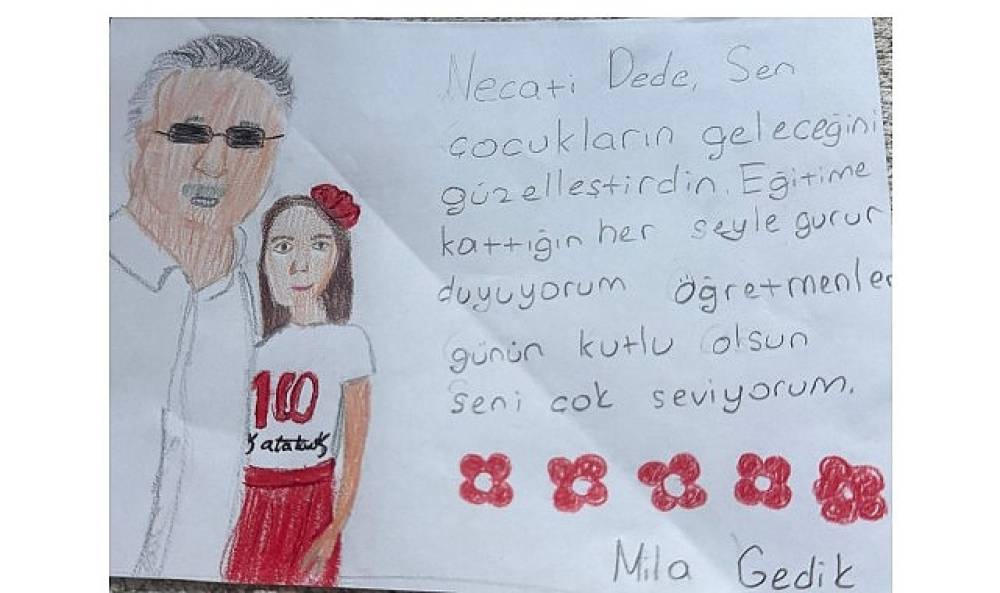 Necati Dede, Sen
çocukların geleceğini
güzelleştirdin. Eğitime
kattığın her şeyle gurur
duyuyorum öğretmenler
günün kutlu olsun
Seni çok seviyorum.
100
Mila Gedik